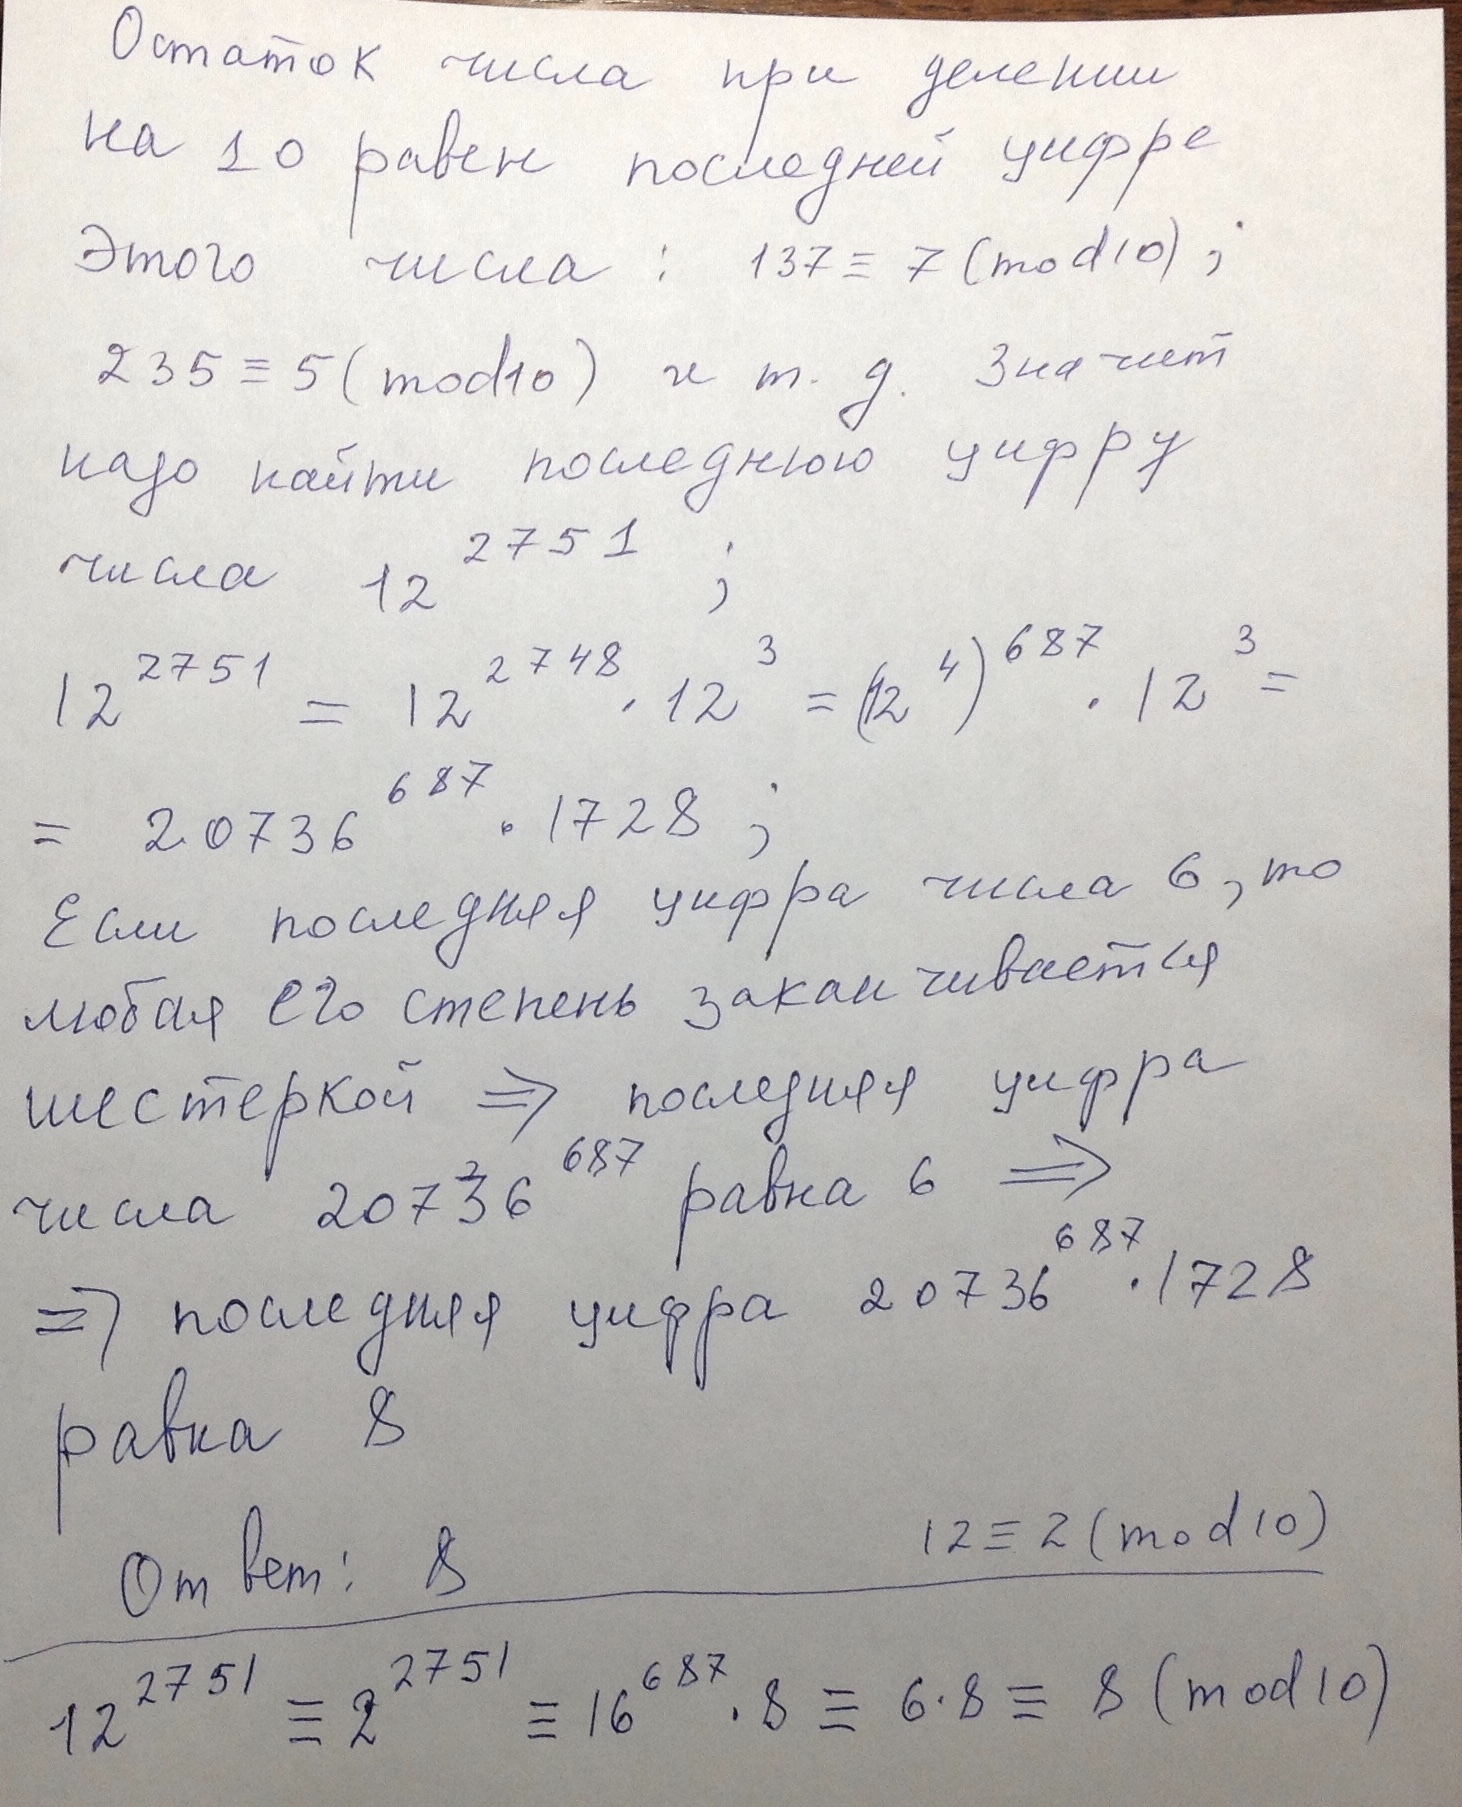 Остаток числа при делении
на 10 равен последней цифре
этого числа : 137 ≡ 7 (mod10) ;
235 ≡ 5 (mod10) и т. д. Значит
надо найти последнюю цифру
числа 12^2751 ;
12^2751 = 12^2748 · 12^3 = (12^4)^687 · 12^3 =
= 20736^687 · 1728 ;
Если последняя цифра числа 6, то
любая его степень заканчивается
шестеркой ⇒ последняя цифра
числа 20736^687 равна 6 ⇒
⇒ последняя цифра 20736^687 · 1728
равна 8
Ответ: 8
12 ≡ 2 (mod10)
12^2751 ≡ 2^2751 ≡ 16^687 · 8 ≡ 6·8 ≡ 8 (mod10)